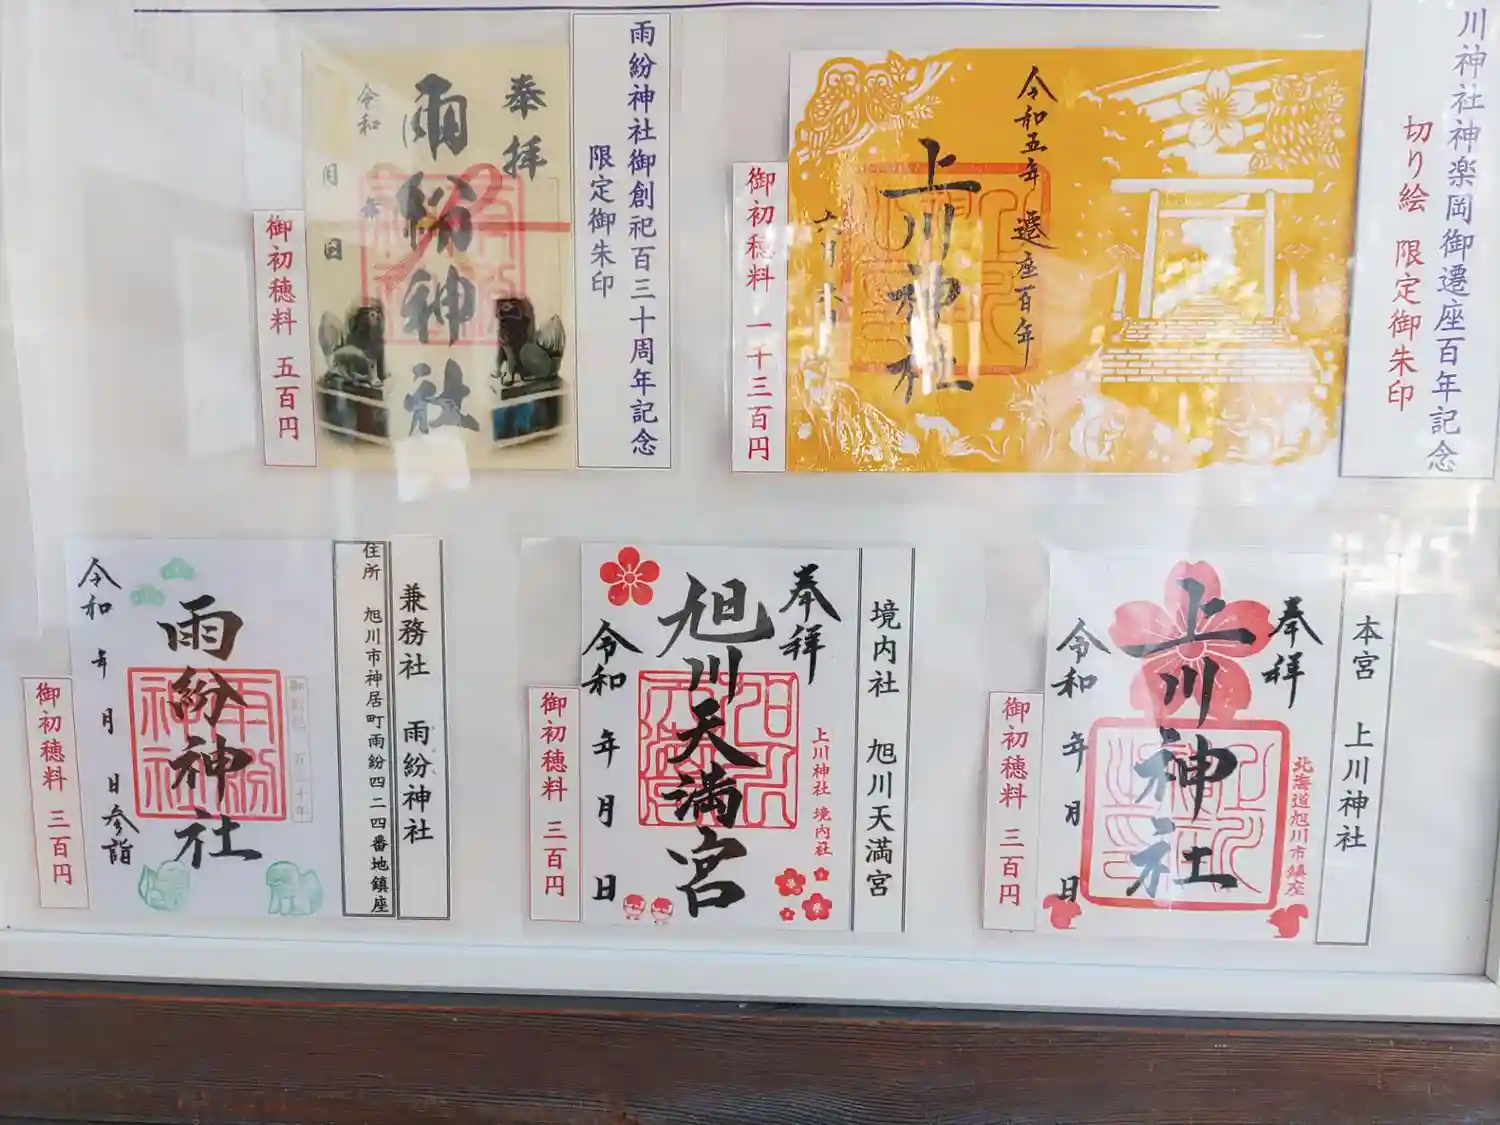 川神社神楽岡御遷座百年記念
切り絵 限定御朱印
令和五年 遷座百年
上川神社
六月
御初穂料 一千三百円
雨紛神社御創祀百三十周年記念
限定御朱印
奉拝
雨紛神社
令和 年
月
日
御初穂料 五百円
本宮 上川神社
奉拝
上川神社
北海道旭川市鎮座
令和 年 月 日
御初穂料 三百円
境内社 旭川天満宮
奉拝
旭川天満宮
上川神社 境内社
令和 年 月 日
御初穂料 三百円
兼務社 雨紛神社
住所 旭川市神居町雨紛四二四番地鎮座
雨紛神社
令和 年 月 日参詣
御初穂料 三百円